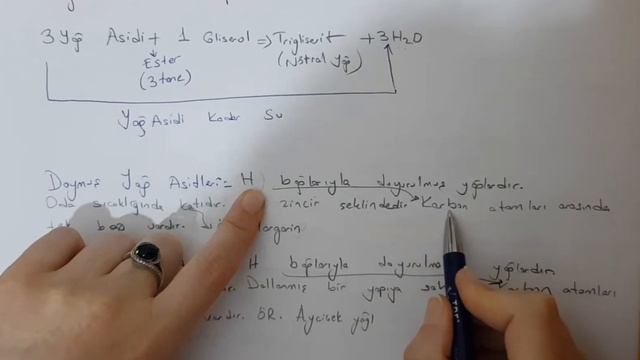 3 Yağ Asidi + 1 Gliserol => Trigliserit + 3H2O
Ester (Nötral Yağ)
(3 tane)
Yağ Asidi Kadar Su
Doymuş Yağ Asidleri = H bağlarıyla doyurulmuş yağlardır.
Oda sıcaklığında katıdır. zincir şeklindedir Karbon atomları arasında
tek bağ vardır.
H bağlarıyla yağlardır
Dallanmış bir yapıya atomları
ÖR. Ayçiçek yağı